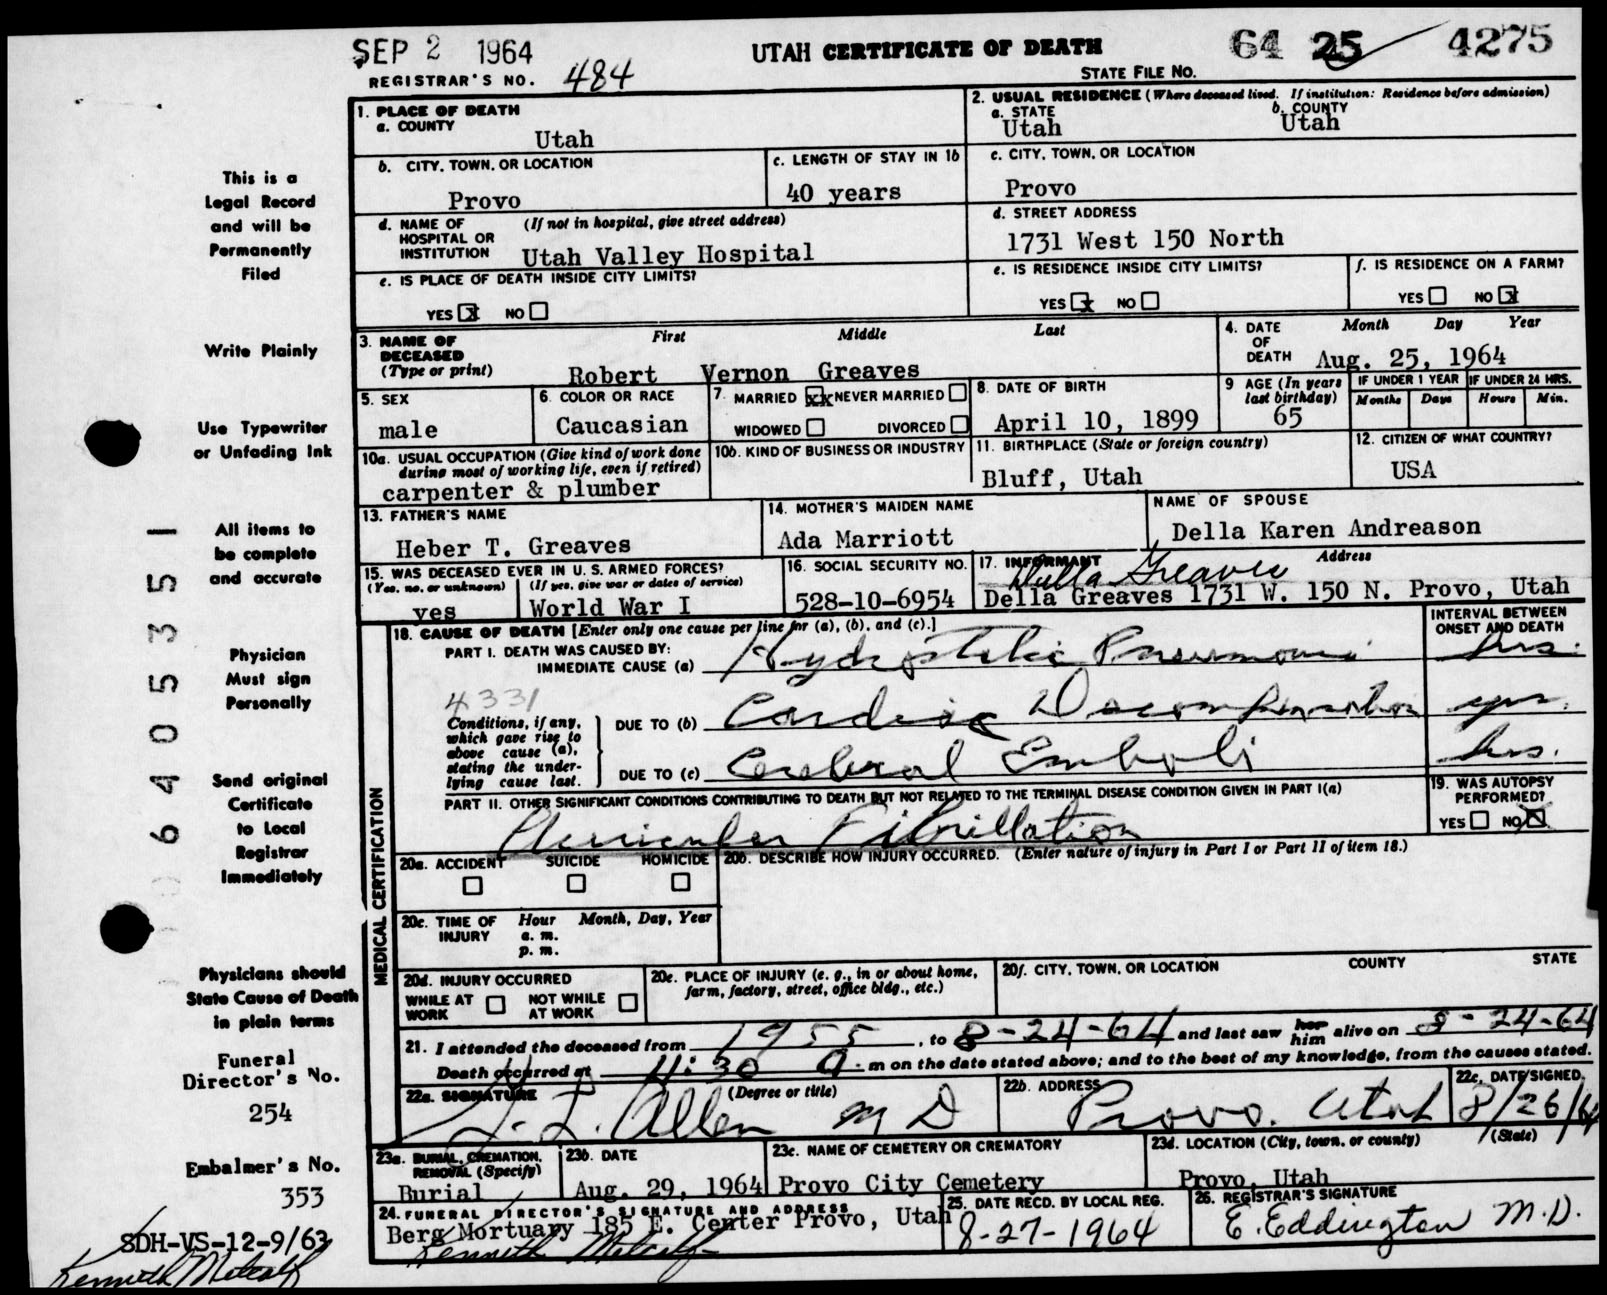 SEP 2 1964
UTAH CERTIFICATE OF DEATH
64 25 4275
REGISTRAR'S NO. 484
STATE FILE NO.
1. PLACE OF DEATH
a. COUNTY
Utah
2. USUAL RESIDENCE (Where deceased lived. If institution: Residence before admission)
a. STATE
Utah
b. COUNTY
Utah
b. CITY, TOWN, OR LOCATION
Provo
c. LENGTH OF STAY IN 1b
40 years
c. CITY, TOWN, OR LOCATION
Provo
d. NAME OF HOSPITAL OR INSTITUTION
(If not in hospital, give street address)
Utah Valley Hospital
d. STREET ADDRESS
1731 West 150 North
e. IS PLACE OF DEATH INSIDE CITY LIMITS?
YES x NO
e. IS RESIDENCE INSIDE CITY LIMITS?
YES x NO
f. IS RESIDENCE ON A FARM?
YES NO x
3. NAME OF DECEASED
(Type or print)
First Middle Last
Robert Vernon Greaves
4. DATE OF DEATH
Month Day Year
Aug. 25, 1964
5. SEX
male
6. COLOR OR RACE
Caucasian
7. MARRIED xx NEVER MARRIED
WIDOWED DIVORCED
8. DATE OF BIRTH
April 10, 1899
9 AGE (In years last birthday)
65
IF UNDER 1 YEAR
Months Days
IF UNDER 24 HRS.
Hours Min.
10a. USUAL OCCUPATION (Give kind of work done during most of working life, even if retired)
carpenter & plumber
10b. KIND OF BUSINESS OR INDUSTRY
11. BIRTHPLACE (State or foreign country)
Bluff, Utah
12. CITIZEN OF WHAT COUNTRY?
USA
13. FATHER'S NAME
Heber T. Greaves
14. MOTHER'S MAIDEN NAME
Ada Marriott
NAME OF SPOUSE
Della Karen Andreason
15. WAS DECEASED EVER IN U. S. ARMED FORCES?
(Yes, no, or unknown)
yes
(If yes, give war or dates of service)
World War I
16. SOCIAL SECURITY NO.
528-10-6954
17. INFORMANT
Address
Della Greaves
Della Greaves 1731 W. 150 N. Provo, Utah
MEDICAL CERTIFICATION
18. CAUSE OF DEATH [Enter only one cause per line for (a), (b), and (c).]
INTERVAL BETWEEN ONSET AND DEATH
PART I. DEATH WAS CAUSED BY:
IMMEDIATE CAUSE (a) Hydrostatic Pneumonia hrs.
4331
Conditions, if any, which gave rise to above cause (a), stating the underlying cause last.
DUE TO (b) Cardiac Decompensation yrs.
DUE TO (c) Cerebral Emboli hrs.
PART II. OTHER SIGNIFICANT CONDITIONS CONTRIBUTING TO DEATH BUT NOT RELATED TO THE TERMINAL DISEASE CONDITION GIVEN IN PART I(a)
Auricular Fibrillation
19. WAS AUTOPSY PERFORMED?
YES NO x
20a. ACCIDENT SUICIDE HOMICIDE
20b. DESCRIBE HOW INJURY OCCURRED. (Enter nature of injury in Part I or Part II of item 18.)
20c. TIME OF INJURY
Hour Month, Day, Year
a. m.
p. m.
20d. INJURY OCCURRED
WHILE AT WORK
NOT WHILE AT WORK
20e. PLACE OF INJURY (e. g., in or about home, farm, factory, street, office bldg., etc.)
20f. CITY, TOWN, OR LOCATION COUNTY STATE
21. I attended the deceased from 1955, to 8-24-64 and last saw her him alive on 8-24-64
Death occurred at 4:30 a. m on the date stated above; and to the best of my knowledge, from the causes stated.
22a. SIGNATURE
(Degree or title)
Allen M D
22b. ADDRESS
Provo, Utah
22c. DATE SIGNED
8/26/64
23a. BURIAL, CREMATION, REMOVAL (Specify)
Burial
23b. DATE
Aug. 29, 1964
23c. NAME OF CEMETERY OR CREMATORY
Provo City Cemetery
23d. LOCATION (City, town, or county) (State)
Provo, Utah
24. FUNERAL DIRECTOR'S SIGNATURE AND ADDRESS
Berg Mortuary 185 E. Center Provo, Utah
Kenneth Metcalf
25. DATE RECD. BY LOCAL REG.
8-27-1964
26. REGISTRAR'S SIGNATURE
E. Eddington M.D.
This is a
Legal Record
and will be
Permanently
Filed
Write Plainly
Use Typewriter
or Unfading Ink
All items to
be complete
and accurate
Physician
Must sign
Personally
Send original
Certificate
to Local
Registrar
Immediately
Physicians should
State Cause of Death
in plain terms
Funeral
Director's No.
254
Embalmer's No.
353
SDH-VS-12-9/63
Kenneth Metcalf